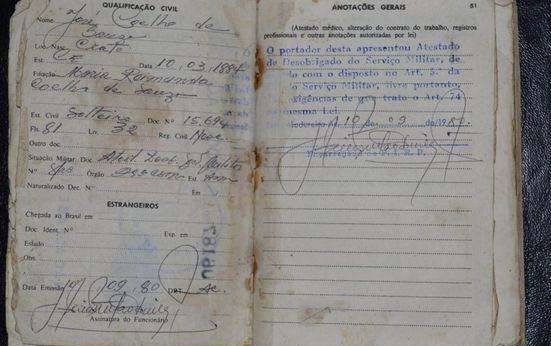 QUALIFICAÇÃO CIVIL
Nome José Coelho de
Souza
Loc. Nasc. Crato
Est. Data 10.03.1884
Filiação Maria Raimunda
Coelho de Souza
Est. Civil Solteiro Doc. Nº 15.694
Fls. 81 Liv. 32 Reg. Civil
Outro doc.
Situação Militar: Doc.
Nº Órgão Est.
Naturalizado Dec. N. Em
ESTRANGEIROS
Chegada ao Brasil em
Doc. Ident. Nº Exp. em
Estado
Obs.
Data Emissão 10/09.80 DRT Ac.
Assinatura do Funcionário
ANOTAÇÕES GERAIS 51
(Atestado médico, alteração do contrato do trabalho, registros
profissionais e outras anotações autorizadas por lei)
O portador desta apresentou Atestado
de Desobrigado do Serviço Militar, de
do com o disposto no Art. 5.º da
o Serviço Militar, livre portanto,
exigências de que trata o Art. 74
mesma Lei.
10 de 09 de 1980.